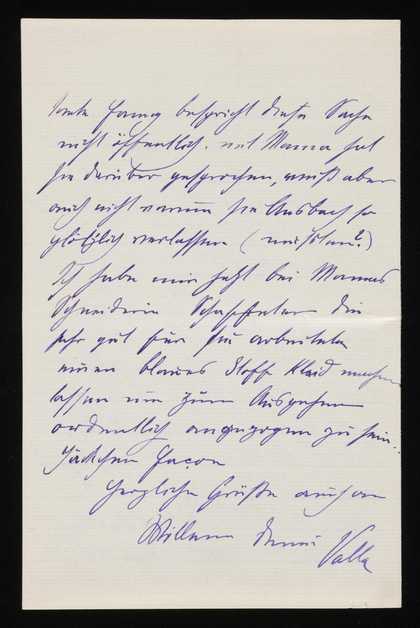 Tante Fanny bespricht diese Sache
nicht öffentlich. mit Mama hat
sie darüber gesprochen, weiß aber
auch nicht warum sie Ansbach so
plötzlich verlassen (mußten?)
Ich habe mir jetzt bei Mamas
Schneiderin die
sehr gut für sie arbeitete
einen blaues Stoff Kleid machen
lassen um zum Ausgehen
ordentlich angezogen zu sein..
Jäckchen Façon
Herzliche Grüße auch an
Willem Deine
Valla